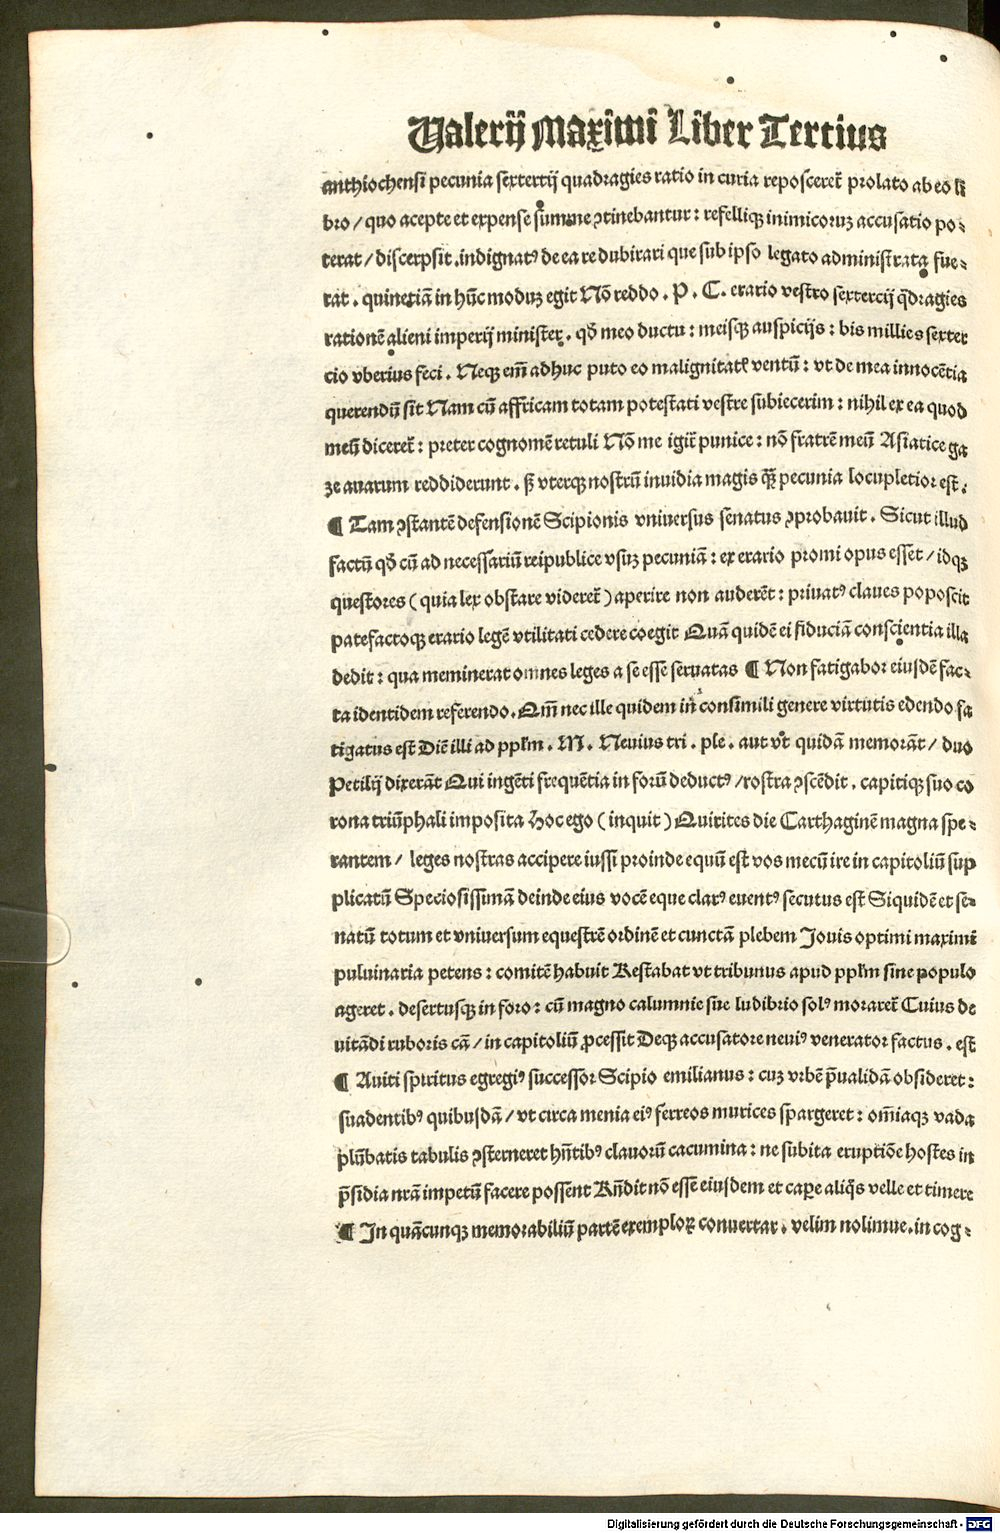 Valerij Maximi Liber Tertius
anthiochensi pecunia sextertij quadragies ratio in curia reposceret̄ prolato ab eo li
bro / quo accepte et expense sum̄me ꝯtinebantur : refelliqꝫ inimicoruꝫ accusatio po⸗
terat / discerpsit . indignatꝰ de ea re dubitari que sub ipso legato administrata fue⸗
rat . quinetiā in hūc moduꝫ egit Nō reddo . P . C . erario vestro sextercij q̄dragies
rationē alieni imperij minister . qd̄ meo ductu : meisqꝫ auspicijs : bis millies sexter
cio vberius feci . Neqꝫ em̄ adhuc puto eo malignitatꝭ ventū : vt de mea innocētia
querendū sit Nam cū affricam totam potestati vestre subiecerim : nihil ex ea quod
meū diceret̄ : preter cognomē retuli Nō me igit̄ punice : nō fratrē meū Asiatice ga
ze auarum reddiderunt . sꝫ vterqꝫ nostrū inuidia magis qꝫ̄ pecunia locupletior est .
¶ Tam ꝯstantē defensionē Scipionis vniuersus senatus ꝯprobauit . Sicut illud
factū qd̄ cū ad necessariū reipublice vsuꝫ pecuniā : ex erario promi opus esset / idqꝫ
questores ( quia lex obstare videret̄ ) aperire non auderēt : priuatꝰ claues poposcit
patefactoqꝫ erario legē vtilitati cedere coegit Quā quidē ei fiduciā conscientia illa
dedit : qua meminerat omnes leges a se esse seruatas ¶ Non fatigabor eiusdē fac⸗
ta identidem referendo . Qm̄ nec ille quidem in̄ consimili genere virtutis edendo fa
tigatus est Diē illi ad ppl̄m . M . Neuius tri . ple . aut vt quidā memorāt / duo
Petilij dixerāt Qui ingēti frequētia in forū deductꝰ / rostra ꝯscēdit . capitiqꝫ suo co
rona triūphali imposita Hoc ego ( inquit ) Quirites die Carthaginē magna spe⸗
rantem / leges nostras accipere iussi proinde equū est vos mecū ire in capitoliū sup
plicatū Speciosissimā deinde eius vocē eque clarꝰ euentꝰ secutus est Siquidē et se⸗
natū totum et vniuersum equestrē ordinē et cunctā plebem Jouis optimi maximi
puluinaria petens : comitē habuit Restabat vt tribunus apud ppl̄m sine populo
ageret . desertusqꝫ in foro : cū magno calumnie sue ludibrio solꝰ moraret̄ Cuius de
uitādi ruboris cā / in capitoliū ꝓcessit Deqꝫ accusatore neuiꝰ venerator factus . est
¶ Auiti spiritus egregiꝰ successor Scipio emilianus : cuꝫ vrbē p̄ualidā obsideret :
suadentibꝰ quibusdā / vt circa menia eiꝰ ferreos murices spargeret : om̄iaqꝫ vada
plūbatis tabulis ꝯsterneret hn̄tibꝰ clauorū cacumina : ne subita eruptiōe hostes in
p̄sidia nr̄a impetū facere possent Rn̄dit nō esse eiusdem et caꝑe aliq̄s velle et timere
¶ In quācunqꝫ memorabiliū partē exemploꝝ conuertar . velim nolimue . in cog⸗
Digitalisierung gefördert durch die Deutsche Forschungsgemeinschaft - DFG